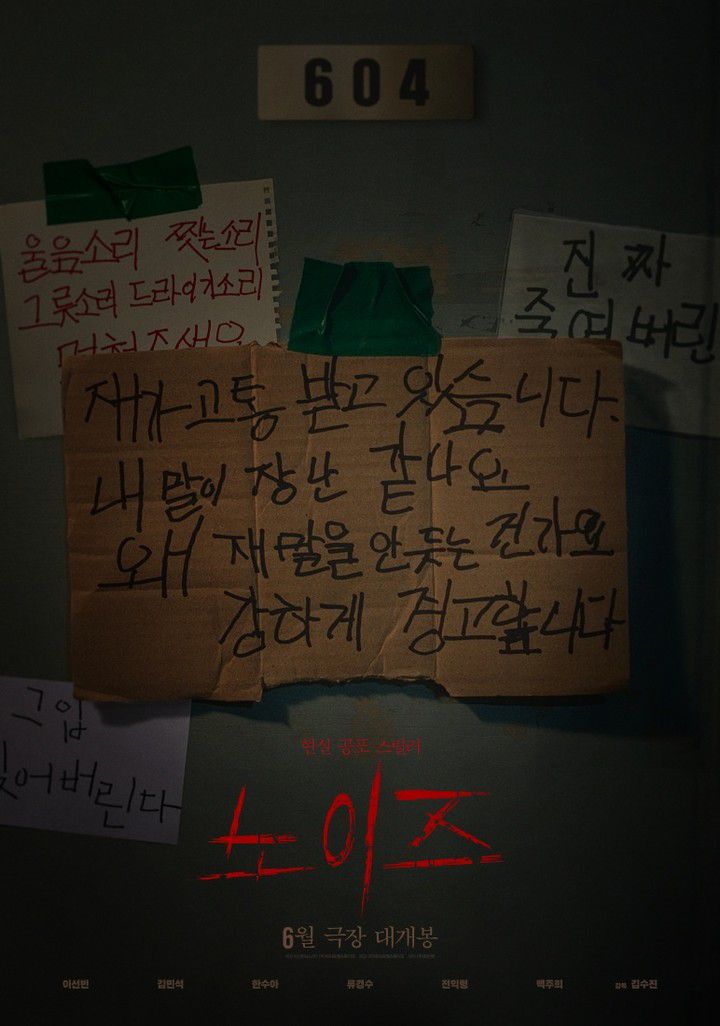 604
울음소리 짖는소리
그릇소리 드라이기소리
멈춰주세요
진짜
죽여버린
재가 고통 받고 있습니다.
내 말이 장난 같나요
왜 재말을 안듣는 건가요
강하게 경고합니다
그입
찢어버린다
현실 공포 스릴러
노이즈
6월 극장 대개봉
이선빈 김민석 한수아 류경수 전익령 백주희 감독 김수진